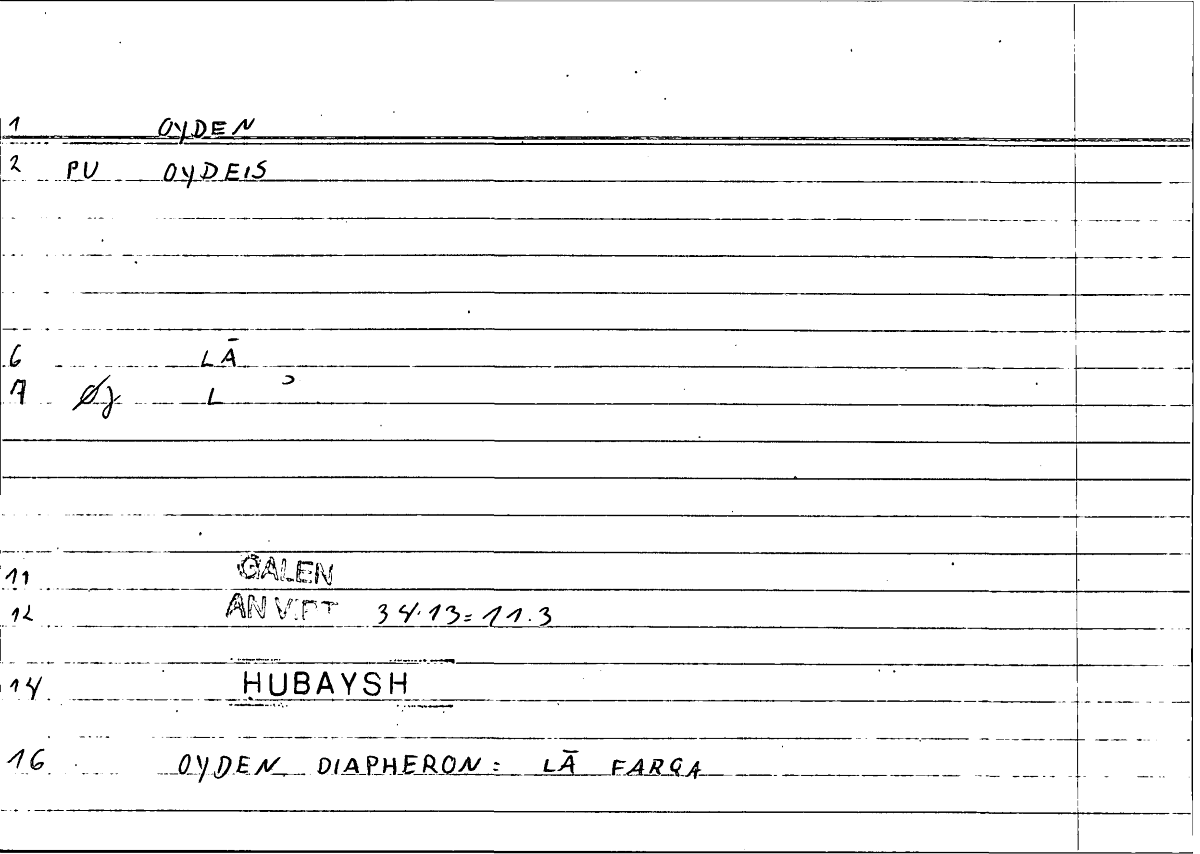 1 OYDEN
2 PU OYDEIS
6 LĀ
7 L ʾ
11 GALEN
12 AN VIRT 34.13=11.3
14 HUBAYSH
16 OYDEN DIAPHERON: LĀ FARQA